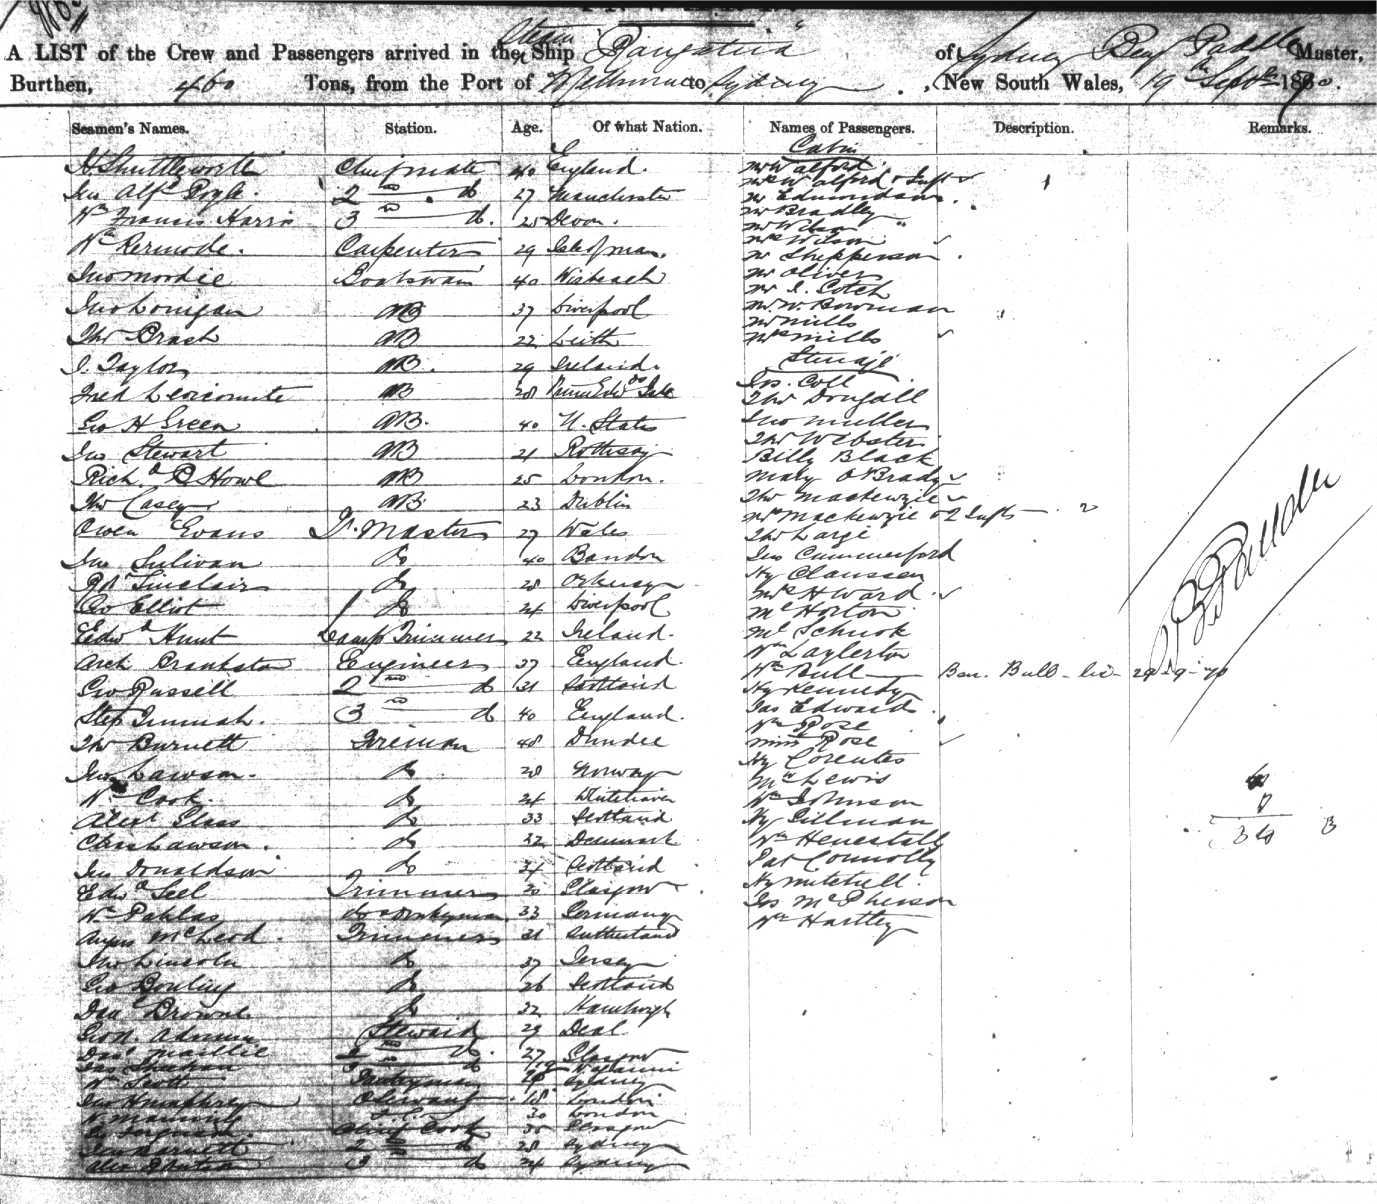 A LIST of the Crew and Passengers arrived in the Steam Ship Rangatira of Sydney Benj Paddle Master,
Burthen, 460 Tons, from the Port of Melbourne to Sydney, New South Wales, 19th Septber 1870.
Seamen's Names. Station. Age. Of what Nation. Names of Passengers. Description. Remarks.
Cabin
H Shuttleworth Chief mate 40 England.
Jno Alfd Pogle. 2nd do 27 Manchester
Wm Francis Harris 3rd do. 25 Devon.
Wm Kermode. Carpenter 29 Isle of man.
Jno Mordie Boatswain 40 Wisbeach
Jno Lonigan AB 37 Liverpool
Thos Brash AB 22 Leith
J. Taylor AB. 29 Ireland.
Fred Lecicomte AB 28 Prince Edwds Isle
Geo H Green AB. 40 U. States
Jno Stewart AB 21 Rothsay
Richd P Howl AB 25 London.
Thos Casey AB. 23 Dublin
Owen Evans Qr. Master 27 Wales
Jno Sulivan do 40 Bandon
Robt Sinclair do 28 Orkney
Geo Elliot do 24 Liverpool
Edwd Hunt Lamp Trimmer 22 Ireland.
Arch Crankston Engineer 37 England
Geo Russell 2nd do 31 Scotland
Step 3rd do 40 England.
Thos Burnett Fireman 48 Dundee
Jno Lawson. do 28 Norway
Wm Cook. do 24 Whitehaven
Alext Glass do 33 Scotland
Chas Lawson. do 22 Denmark
Jno Donaldson do 34 Scotland
Edwd Teel Trimmer 30 Glasgow
Wm Pahlas do & Donkeyman 33 Germany
Angus McLeod. Trimmer 31 Sutherland
Jno Lincoln do 37 Jersey
Geo Bowling do 26 Scotland
Brown do 32 Hamburgh
Steward 29 Deal
2nd do. 27 Glasgow
do 19
Wm Scott Pantryman 20 Sydney
Jno Humphrey 18 London
30 London
Chief Cook 35 Glasgow
2nd do 28 Sydney
3 do 24 Sydney
Mr Walford.
Mrs Walford & Inft
Mr Edmundson.
Mr Bradley
Mr Wilson
Mrs Wilson
Mr Shepperson
Mr Oliver
Mr J. Cotch
Mr W. Bowman
Mr Mills
Mrs Mills
Steerage
Jos. Coll
Thos Dougall
Jno Muller
Thos Webster
Billy Black
Mary O'Brady
Thos Mackenzie
Mrs Mackenzie & 2 Infts 2
Thos Large
Jas Cummerford
Hy Claussen
Mrs H Ward.
Mc Horton
Ml Schuok
Wm Laylerton
Wm Bull Ben. Bull
Hy Kennedy
Jas Edwards
Wm Rose
Miss Rose
Hy Corentes
Mr Lewis
Wm Johnson
Hy Gillman
Wm Henestall
Pat Connolly
Hy Mitchell.
Jos McPherson
Wm Hartley